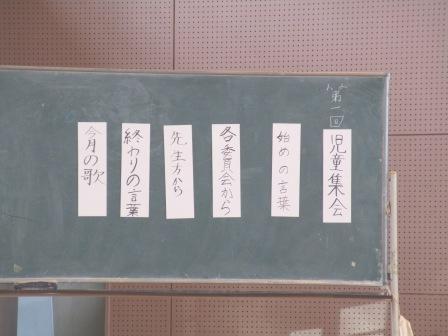 第一回
児童集会
始めの言葉
各委員会から
先生方から
終わりの言葉
今月の歌